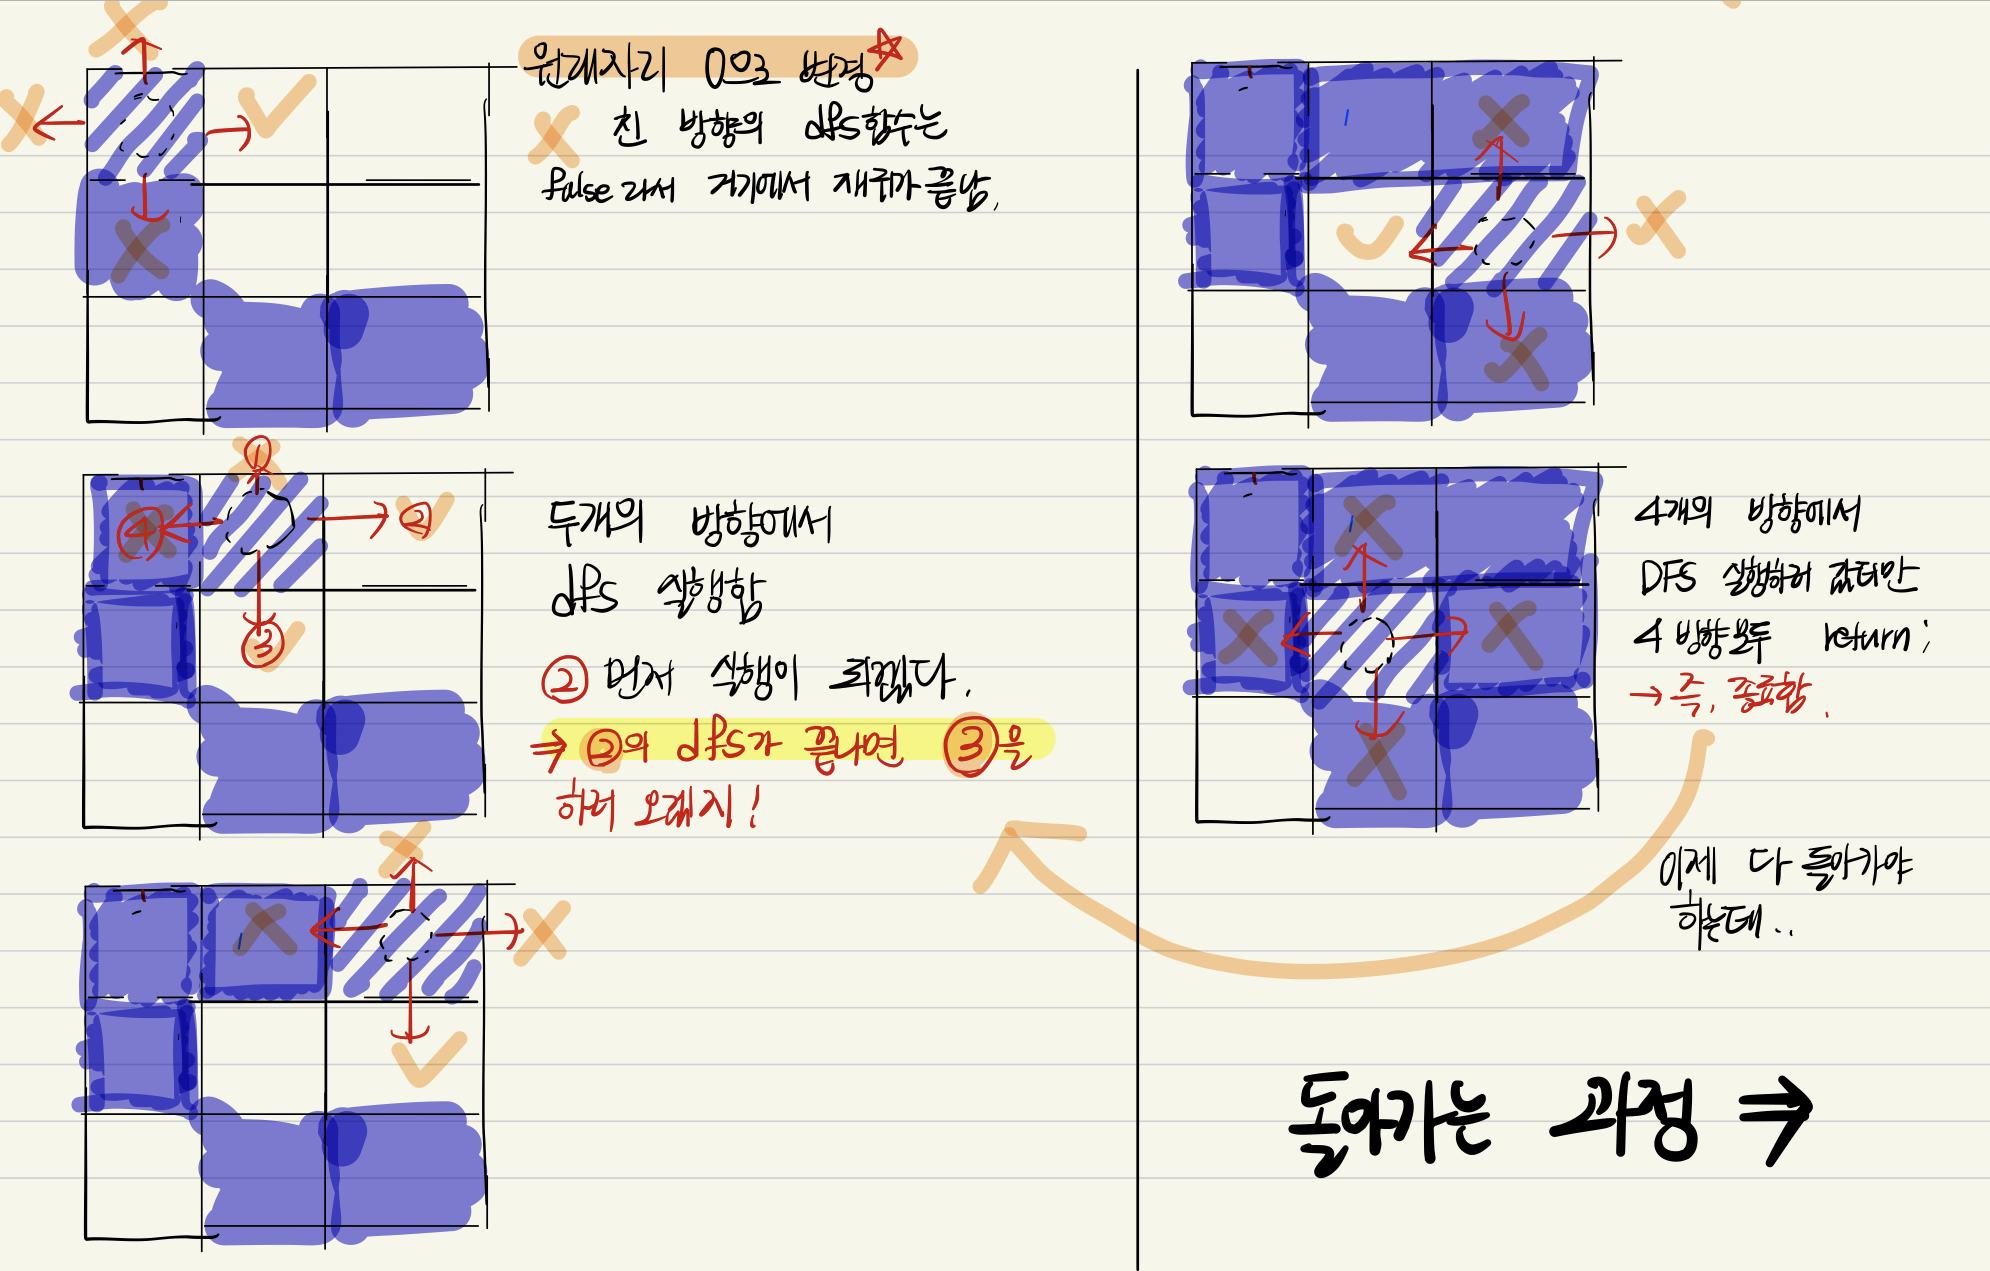 원래자리 0으로 변경
X 친 방향의 dfs함수는
false라서 거기에서 재귀가 끝남.
① ② ③ ④
두개의 방향에서
dfs 실행함
② 먼저 실행이 되겠다.
⇒ ②의 dfs가 끝나면 ③을
하러 오겠지!
4개의 방향에서
DFS 실행하러 갔더만
4방향모두 return;
→ 즉, 종료함.
이제 다 돌아가야
하는데..
돌아가는 과정 ⇒